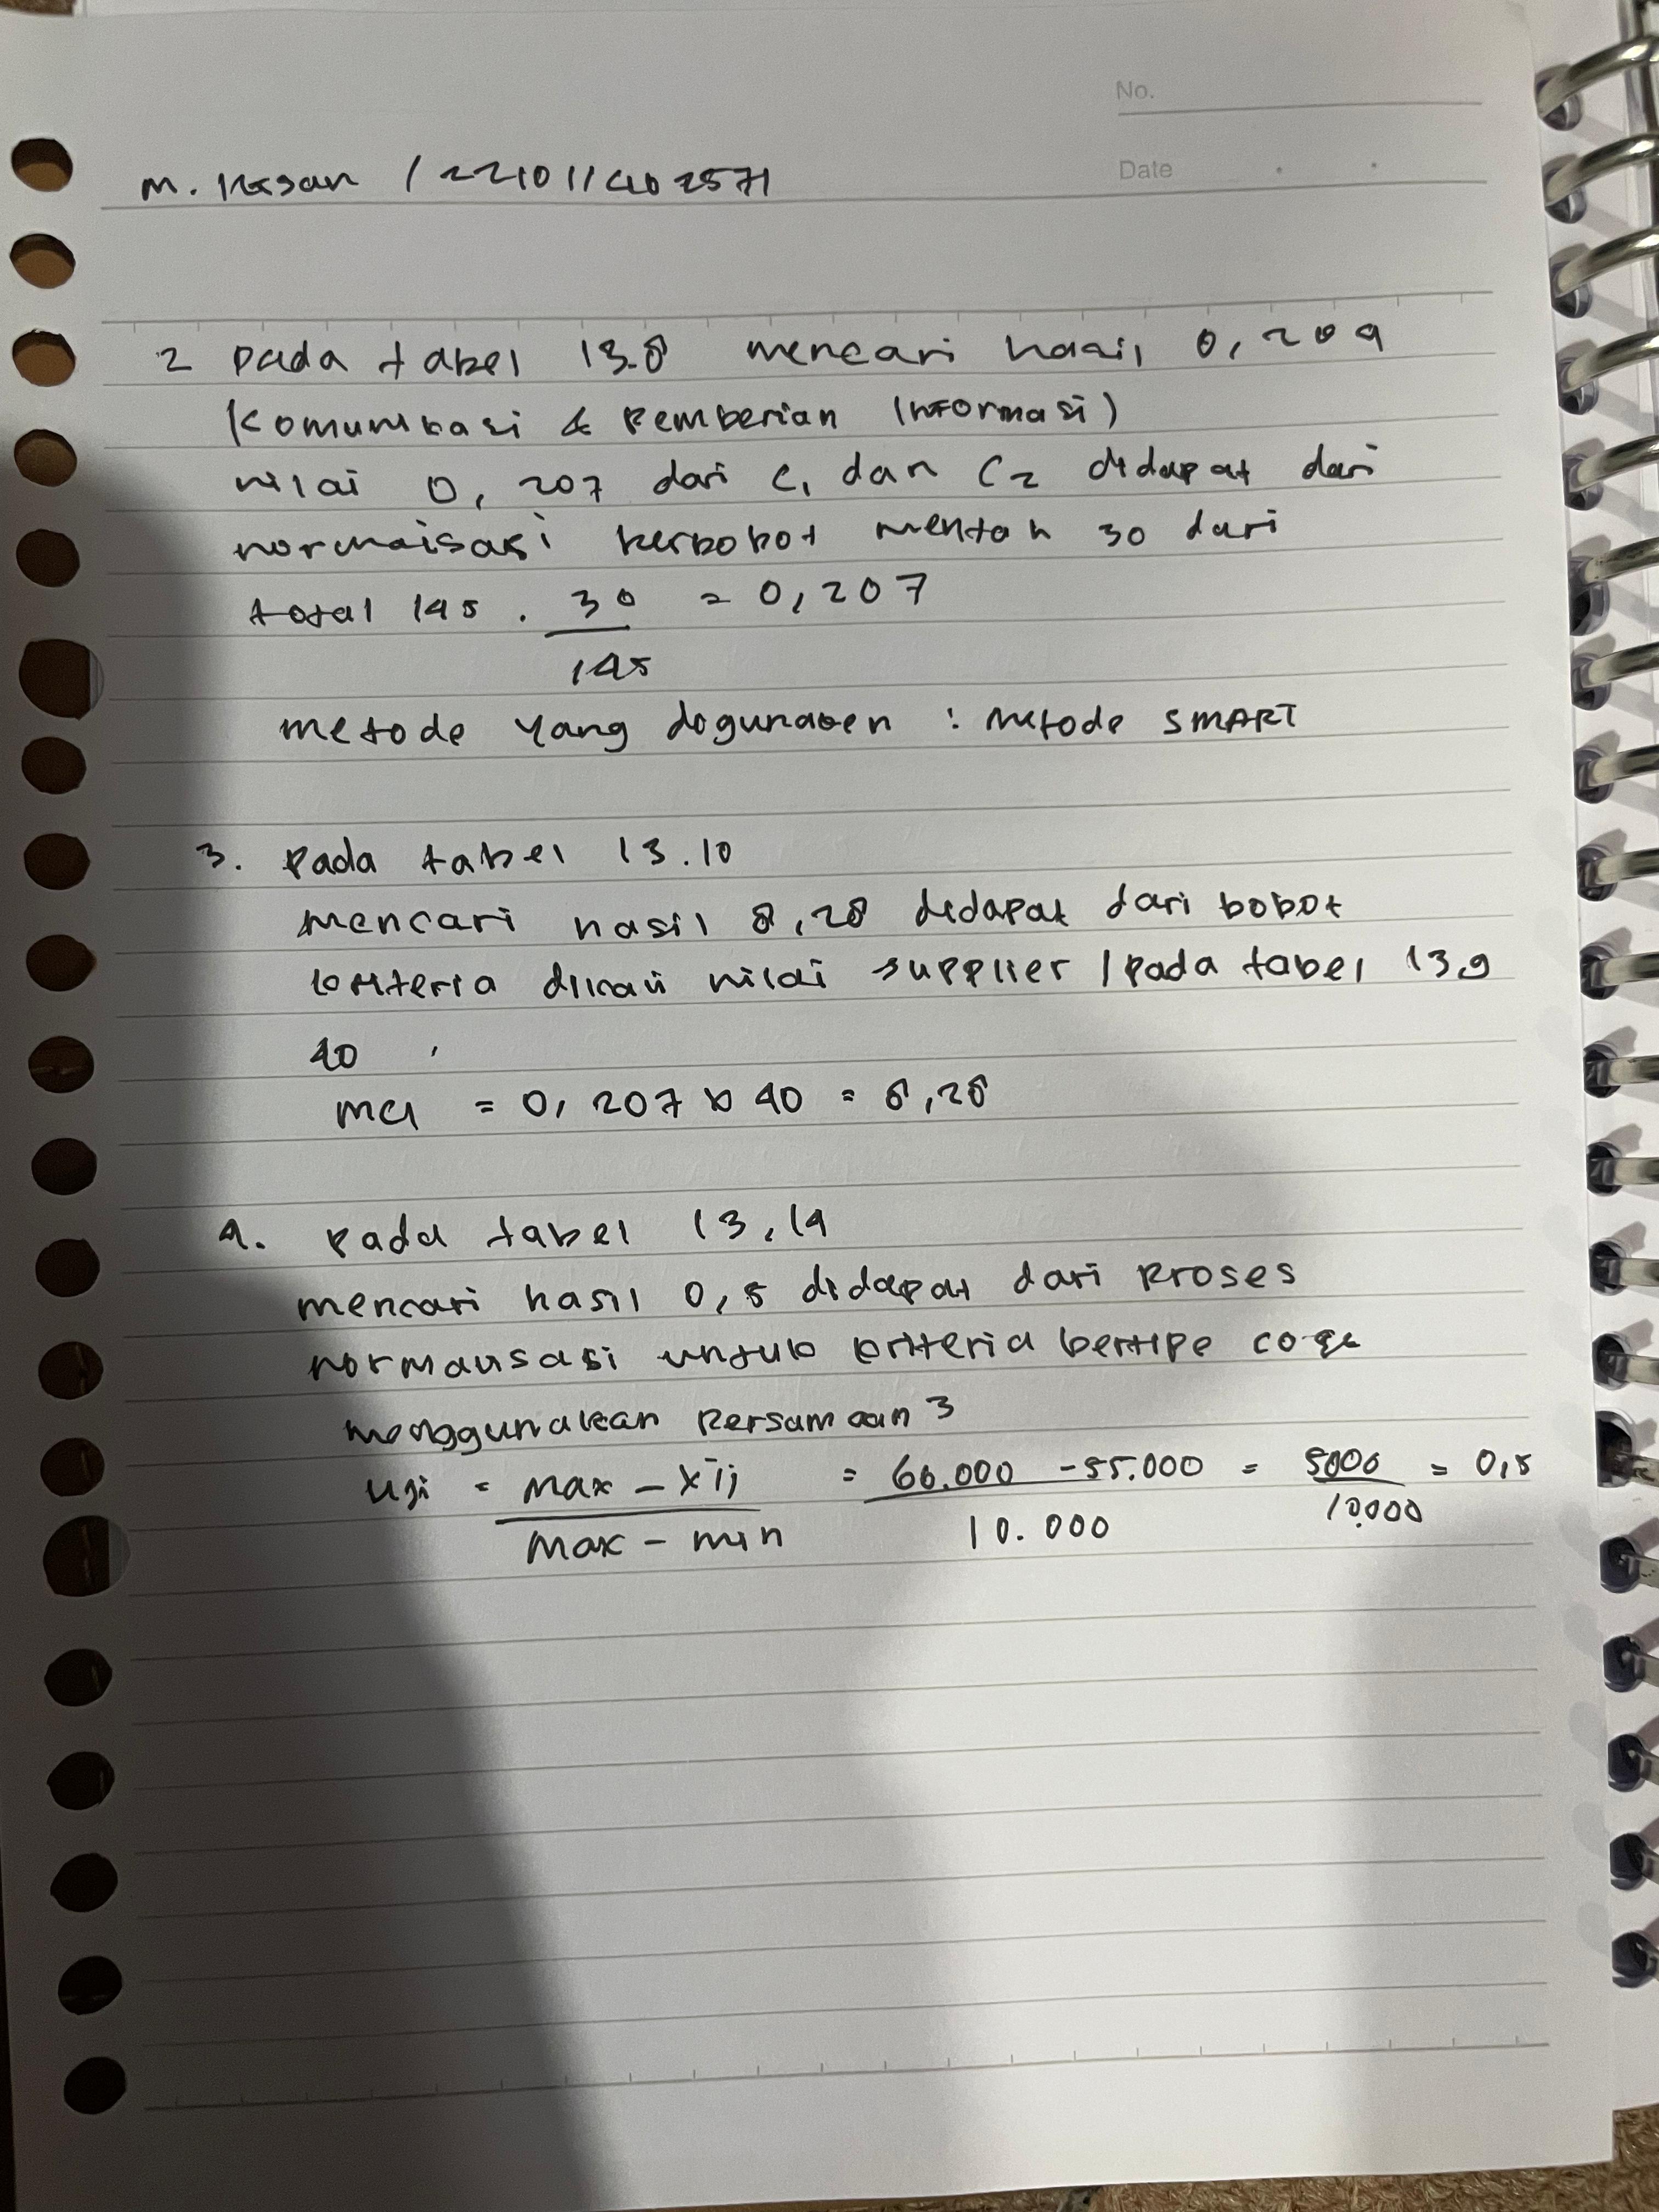 No.
Date
m. Iksan / 221011402571
2 pada tabel 13.8 mencari hasil 0,209
(Komunikasi & Pemberian Informasi)
nilai 0,207 dari C1 dan C2 didapat dari
normaisasi berbobot mentah 30 dari
total 145 . 30 = 0,207
145
metode yang digunakan : Metode SMART
3. Pada tabel 13.10
mencari hasil 8,28 didapat dari bobot
kriteria dikali nilai supplier 1 pada tabel 13.9
40
= 0,207 x 40 = 8,28
4. Pada tabel 13,14
mencari hasil 0,5 didapat dari Proses
normalisasi untuk kriteria bertipe
menggunakan Persamaan 3
uji = max - xij = 60.000 - 55.000 = 5000 = 0,5
max - min 10.000 10.000